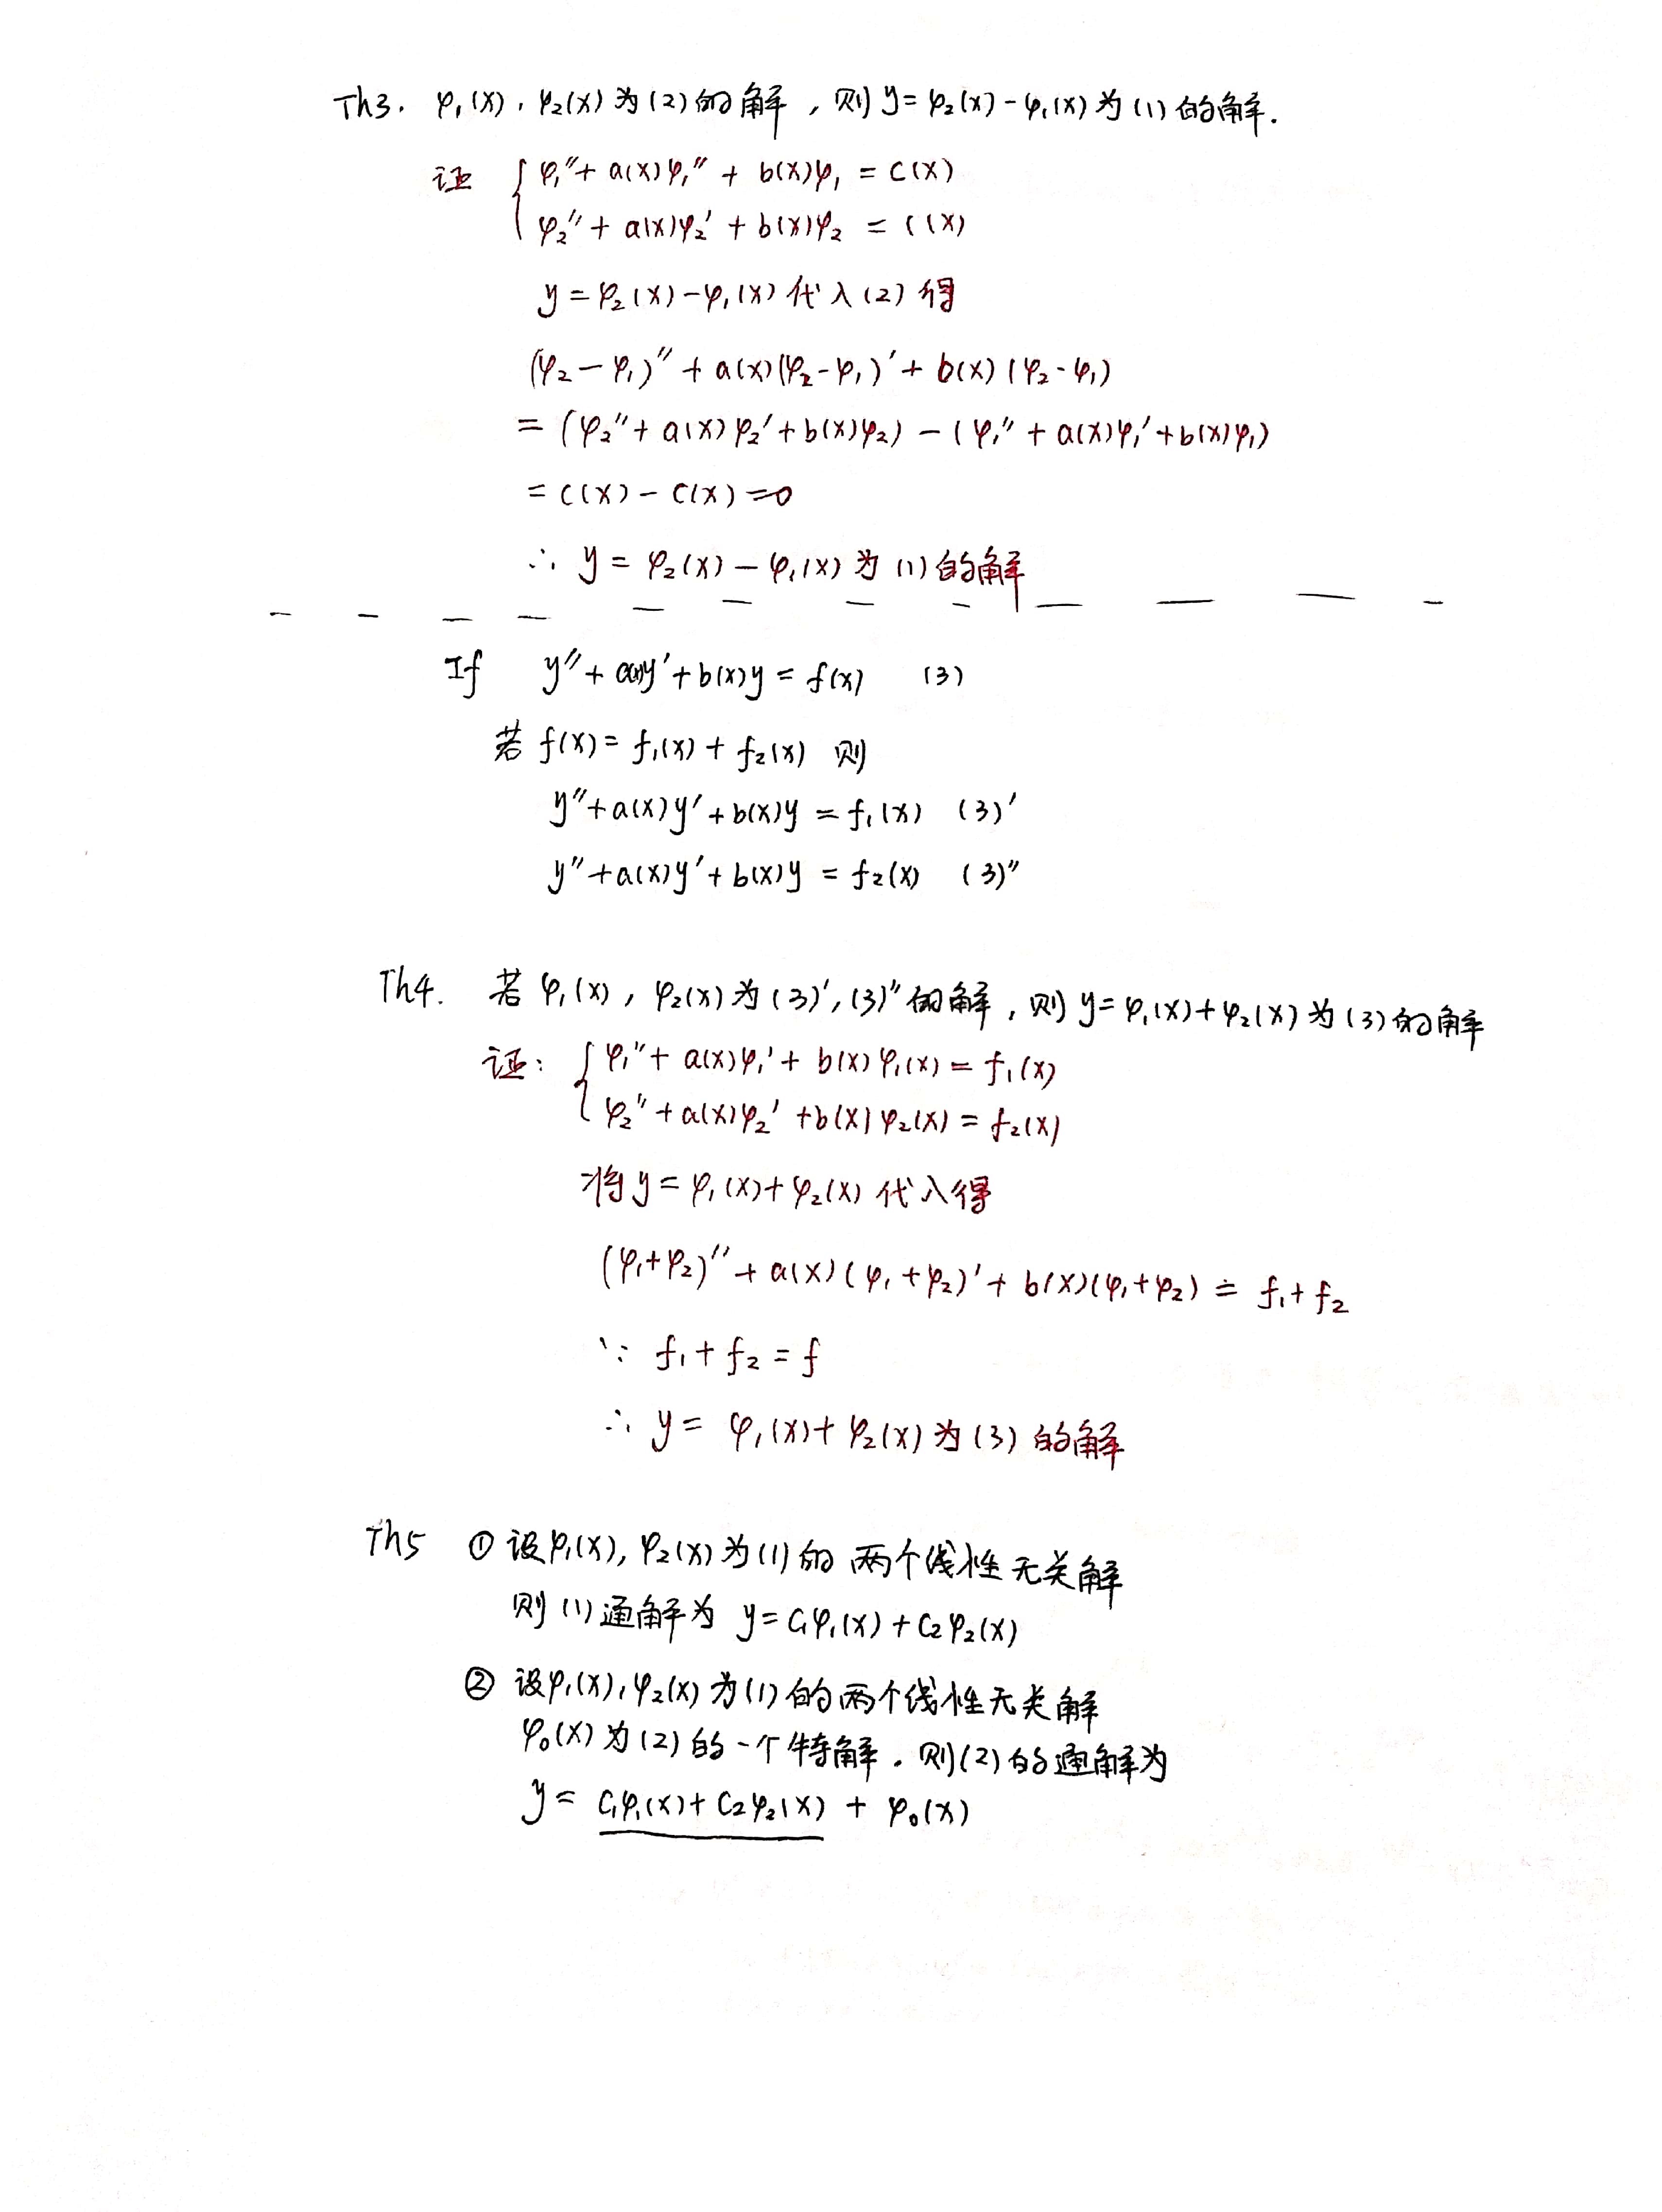 Th3. φ₁(x), φ₂(x)为(2)的解，则y=φ₂(x)-φ₁(x)为(1)的解.
证 { φ₁″+a(x)φ₁″+b(x)φ₁=c(x)
φ₂″+a(x)φ₂′+b(x)φ₂=c(x)
y=φ₂(x)-φ₁(x)代入(2)得
(φ₂-φ₁)″+a(x)(φ₂-φ₁)′+b(x)(φ₂-φ₁)
=(φ₂″+a(x)φ₂′+b(x)φ₂)-(φ₁″+a(x)φ₁′+b(x)φ₁)
=c(x)-c(x)=0
∴ y=φ₂(x)-φ₁(x)为(1)的解
If y″+a(x)y′+b(x)y=f(x) (3)
若f(x)=f₁(x)+f₂(x) 则
y″+a(x)y′+b(x)y=f₁(x) (3)′
y″+a(x)y′+b(x)y=f₂(x) (3)″
Th4. 若φ₁(x), φ₂(x)为(3)′,(3)″的解，则y=φ₁(x)+φ₂(x)为(3)的解
证: { φ₁″+a(x)φ₁′+b(x)φ₁(x)=f₁(x)
φ₂″+a(x)φ₂′+b(x)φ₂(x)=f₂(x)
将y=φ₁(x)+φ₂(x)代入得
(φ₁+φ₂)″+a(x)(φ₁+φ₂)′+b(x)(φ₁+φ₂)=f₁+f₂
∵ f₁+f₂=f
∴ y=φ₁(x)+φ₂(x)为(3)的解
Th5 ① 设φ₁(x), φ₂(x)为(1)的两个线性无关解
则(1)通解为 y=C₁φ₁(x)+C₂φ₂(x)
② 设φ₁(x),φ₂(x)为(1)的两个线性无关解
φ₀(x)为(2)的一个特解. 则(2)的通解为
y=C₁φ₁(x)+C₂φ₂(x)+φ₀(x)